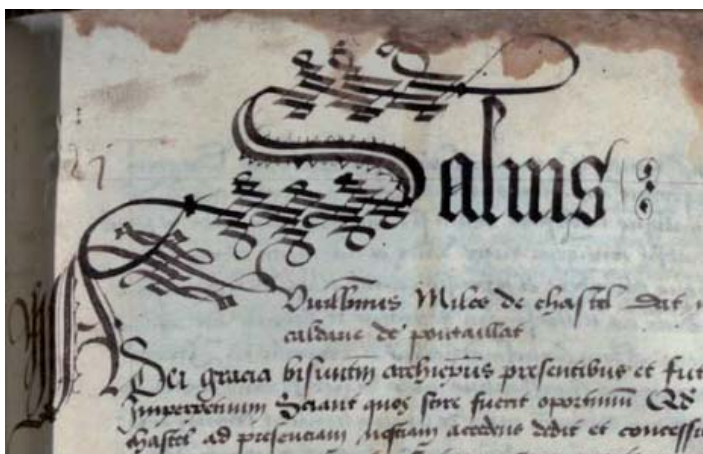 Salins
Miles de chastel dat
caldarie de pontaillat
Dei gracia bisuntin archiep̄us presentibus et fut
Imperpetuum Sciant quos scire fuerit oportunū Qd
chastel ad presenciam nostram accedens dedit et concessi